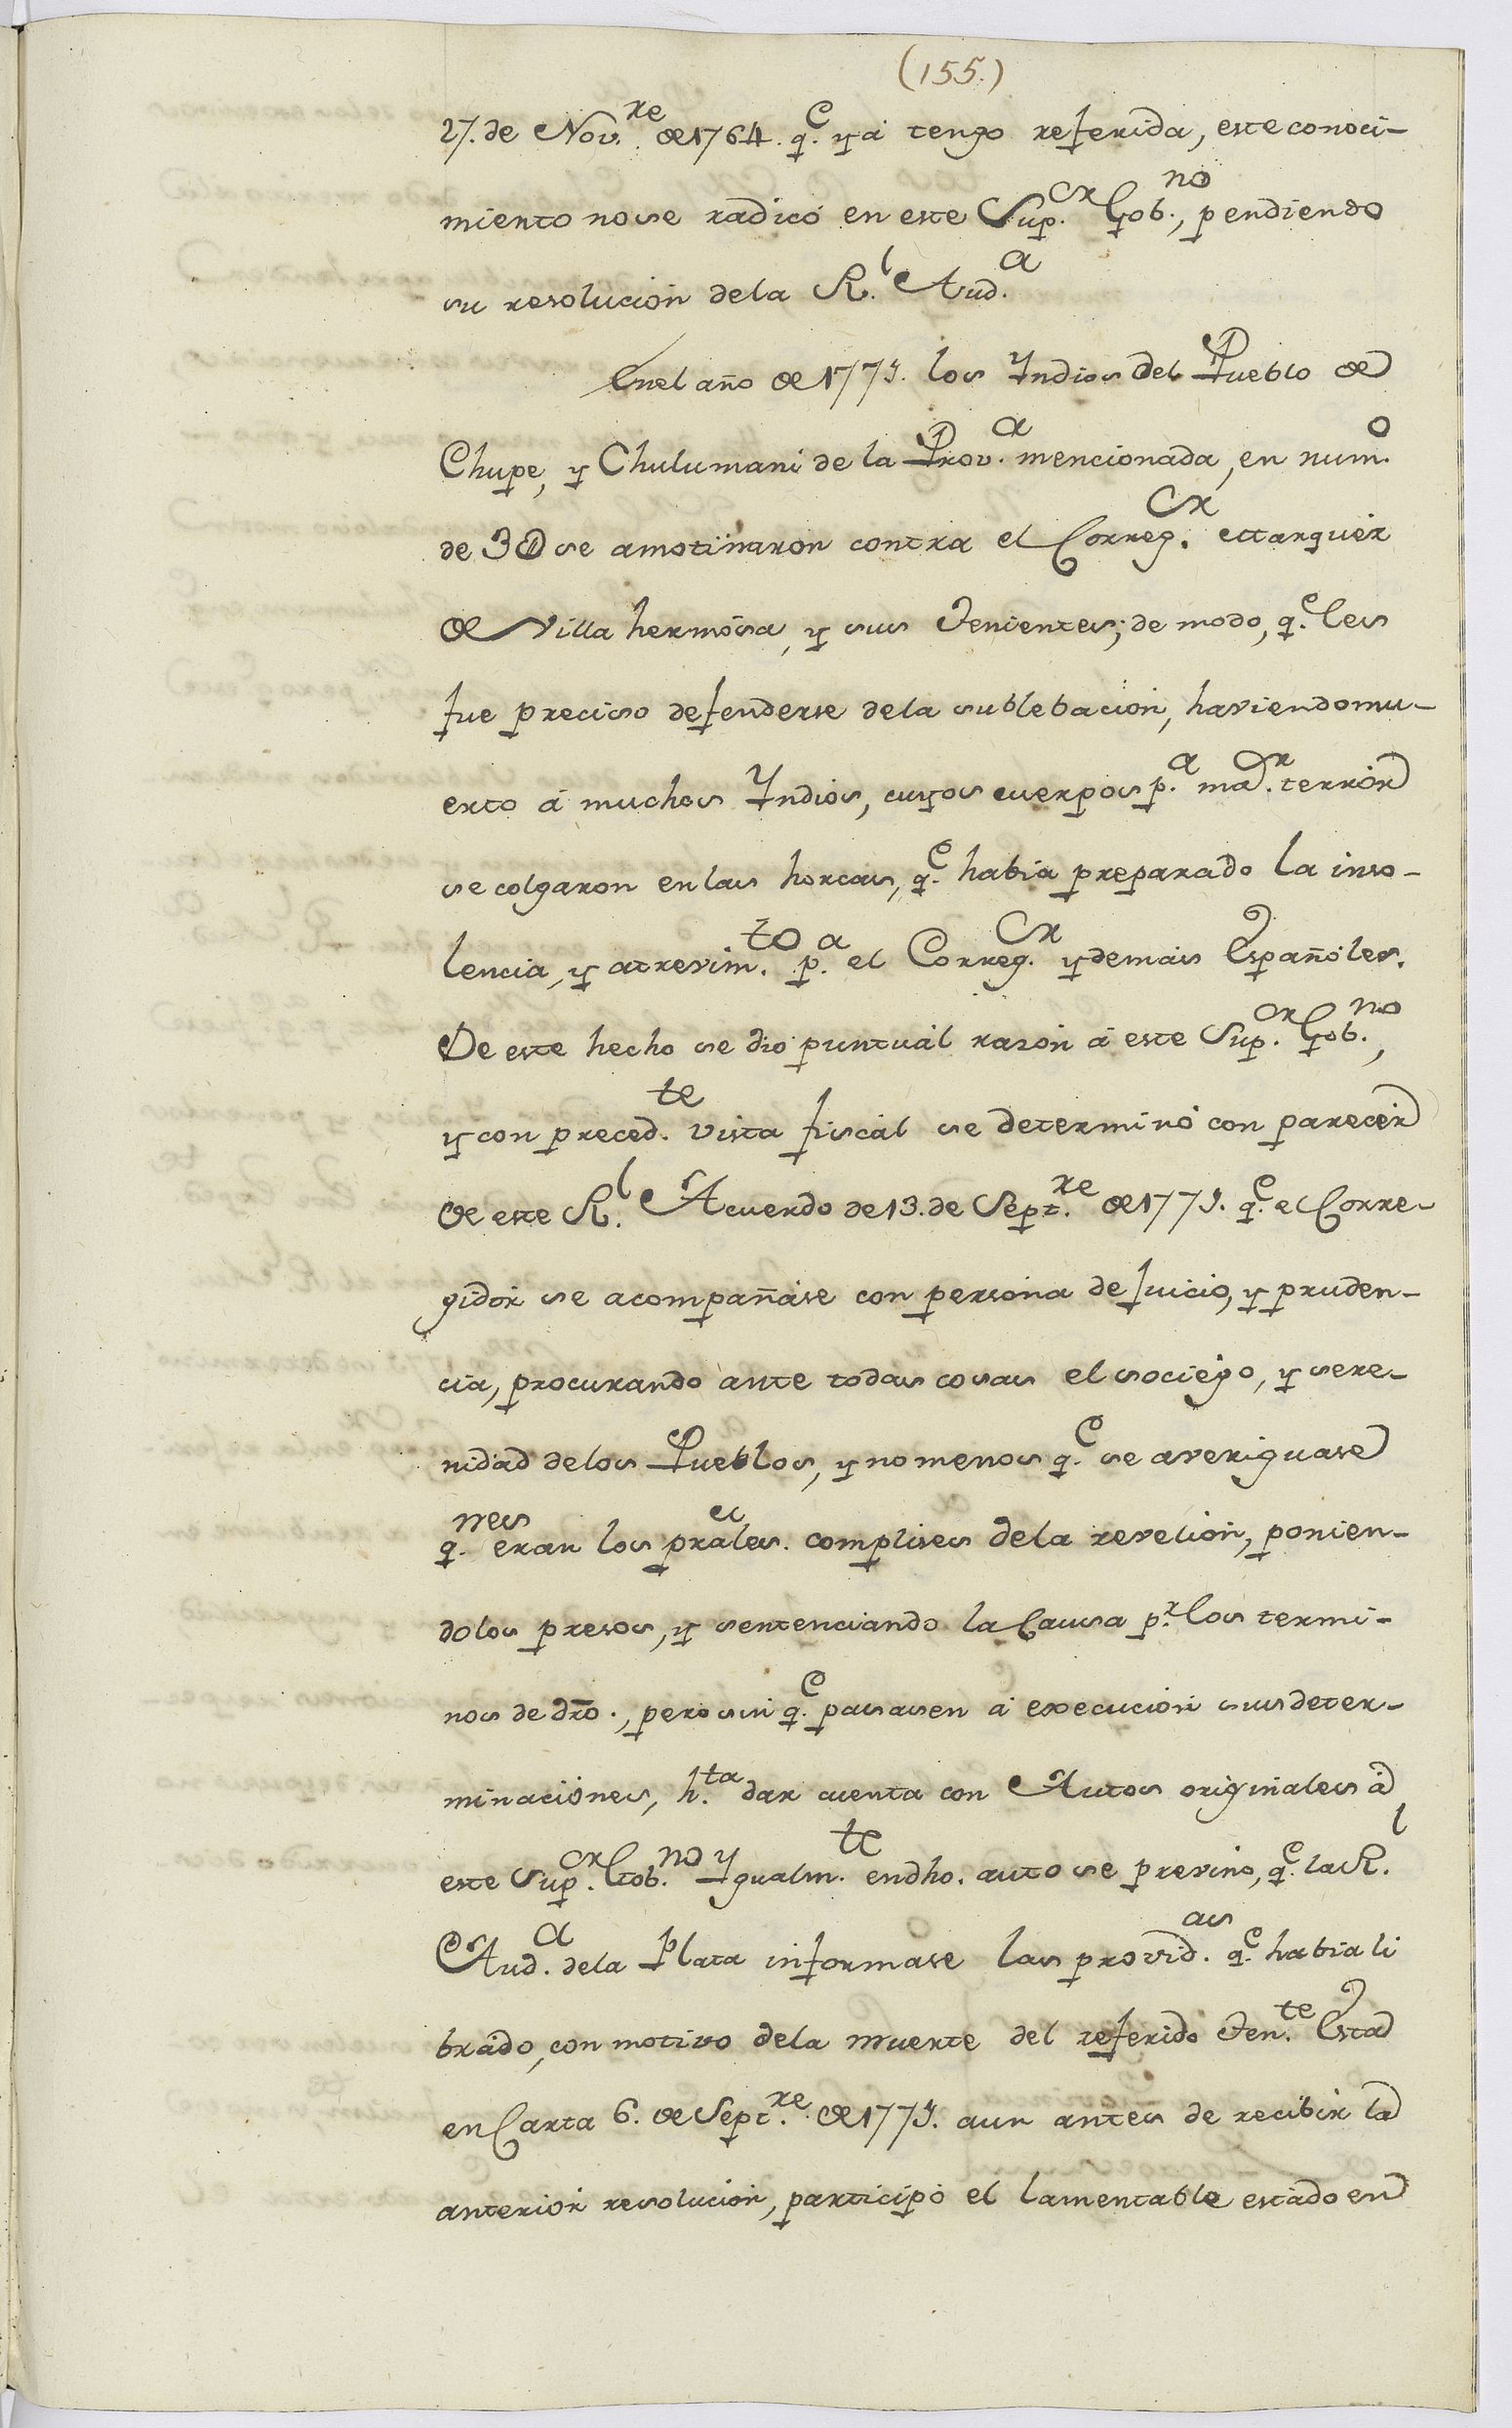 (155.)
27. de Nov.re de 1764. q.e ya tengo referida, este conoci-
miento no se radicó en este Sup.or Gob.no, pendiendo
su resolucion dela R.l Aud.a
En el año de 1771. los Yndios del Pueblo de
Chupe, y Chulumani de la Prov.a mencionada, en num.o
de 3@ se amotinaron contra el Correg.or Marquer
de Villa hermosa, y sus Tenientes; de modo, q.e les
fue preciso defenderse dela sublebacion, haviendo mu-
erto á muchos Yndios, cuyos cuerpos p.a ma.or terror
se colgaron en las horcas, q.e habia preparado la inso-
lencia, y atrevim.to p.a el Correg.or y demas Españoles.
De este hecho se dio puntual razon á este Sup.or Gob.no,
y con preced.te vista fiscal se determinó con parecer
de este R.l Acuerdo de 13. de Sept.re de 1771. q.e el Corre-
gidor se acompañase con persona de Juicio, y pruden-
cia, procurando ante todas cosas el sociego, y sere-
nidad delos Pueblos, y no menos q.e se averiguase
q.nes eran los prales. complises dela revelion, ponien-
dolos presos, y sentenciando la Causa p.r los termi-
nos de dro., pero sin q.e pasasen á execucion sus deter-
minaciones, h.ta dar cuenta con Autos originales á
este Sup.or Gob.no Ygualm.te en dho. auto se previno, q.e la R.l
Aud.a dela Plata informase las provid.as q.e habia li
brado, con motivo dela muerte del referido Ten.te Esta
en Carta 6. de Sept.re de 1771. aun antes de recibir la
anterior resolucion, participó el lamentable estado en